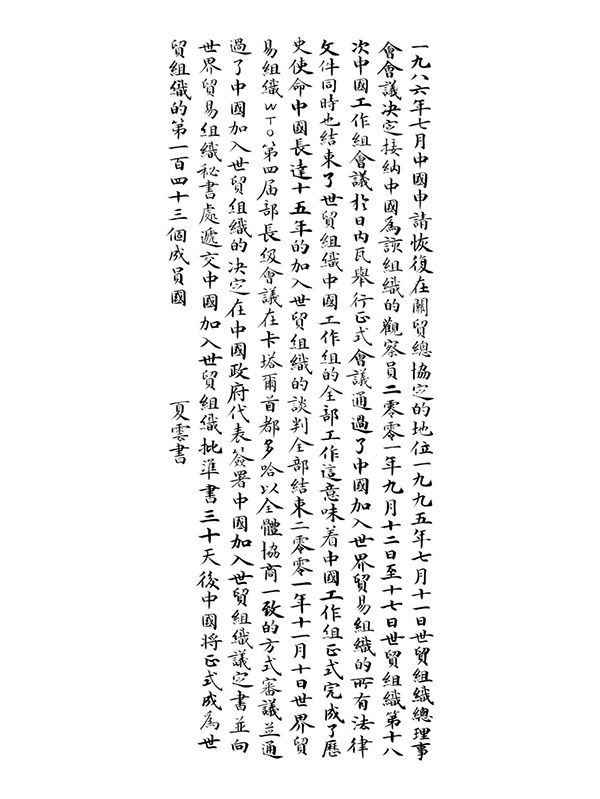 一九八六年七月中國申請恢復在關貿總協定的地位一九九五年七月十一日世貿組織總理事
會會議决定接納中國為該組織的觀察員二零零一年九月十二日至十七日世貿組織第十八
次中國工作組會議於日内瓦舉行正式會議通過了中國加入世界貿易組織的所有法律
文件同時也結束了世貿組織中國工作組的全部工作這意味着中國工作組正式完成了歷
史使命中國長達十五年的加入世貿組織的談判全部結束二零零一年十一月十日世界貿
易組織WTO第四届部長级會議在卡塔爾首都多哈以全體協商一致的方式審議並通
過了中國加入世貿組織的决定在中國政府代表簽署中國加入世貿組織議定書並向
世界貿易組織秘書處遞交中國加入世貿組織批准書三十天後中國将正式成為世
貿組織的第一百四十三個成員國
夏雲書